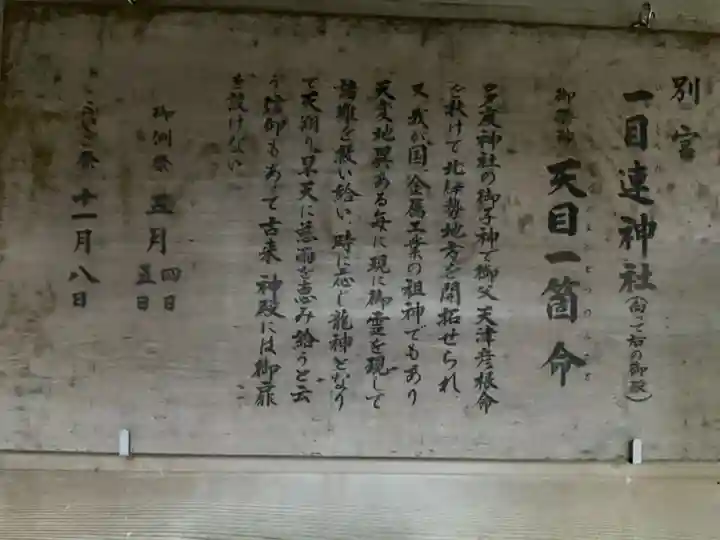 別宮
一目連神社(向って右の御殿)
御祭神 天目一箇命
あめのまひとつのみこと
多度神社の御子神で御父天津彦根命
を扶けて北伊勢地方を開拓せられ
又我が国、金属工業の祖神でもあり
天変地異ある毎に現に御霊を現して
諸難を救い給い、時に応じ龍神となり
て天翔り旱天に慈雨を恵み給うと云
う信仰もあって古来神殿には御扉
を設けない
御例祭 五月四日 五日
ふいご祭 十一月八日